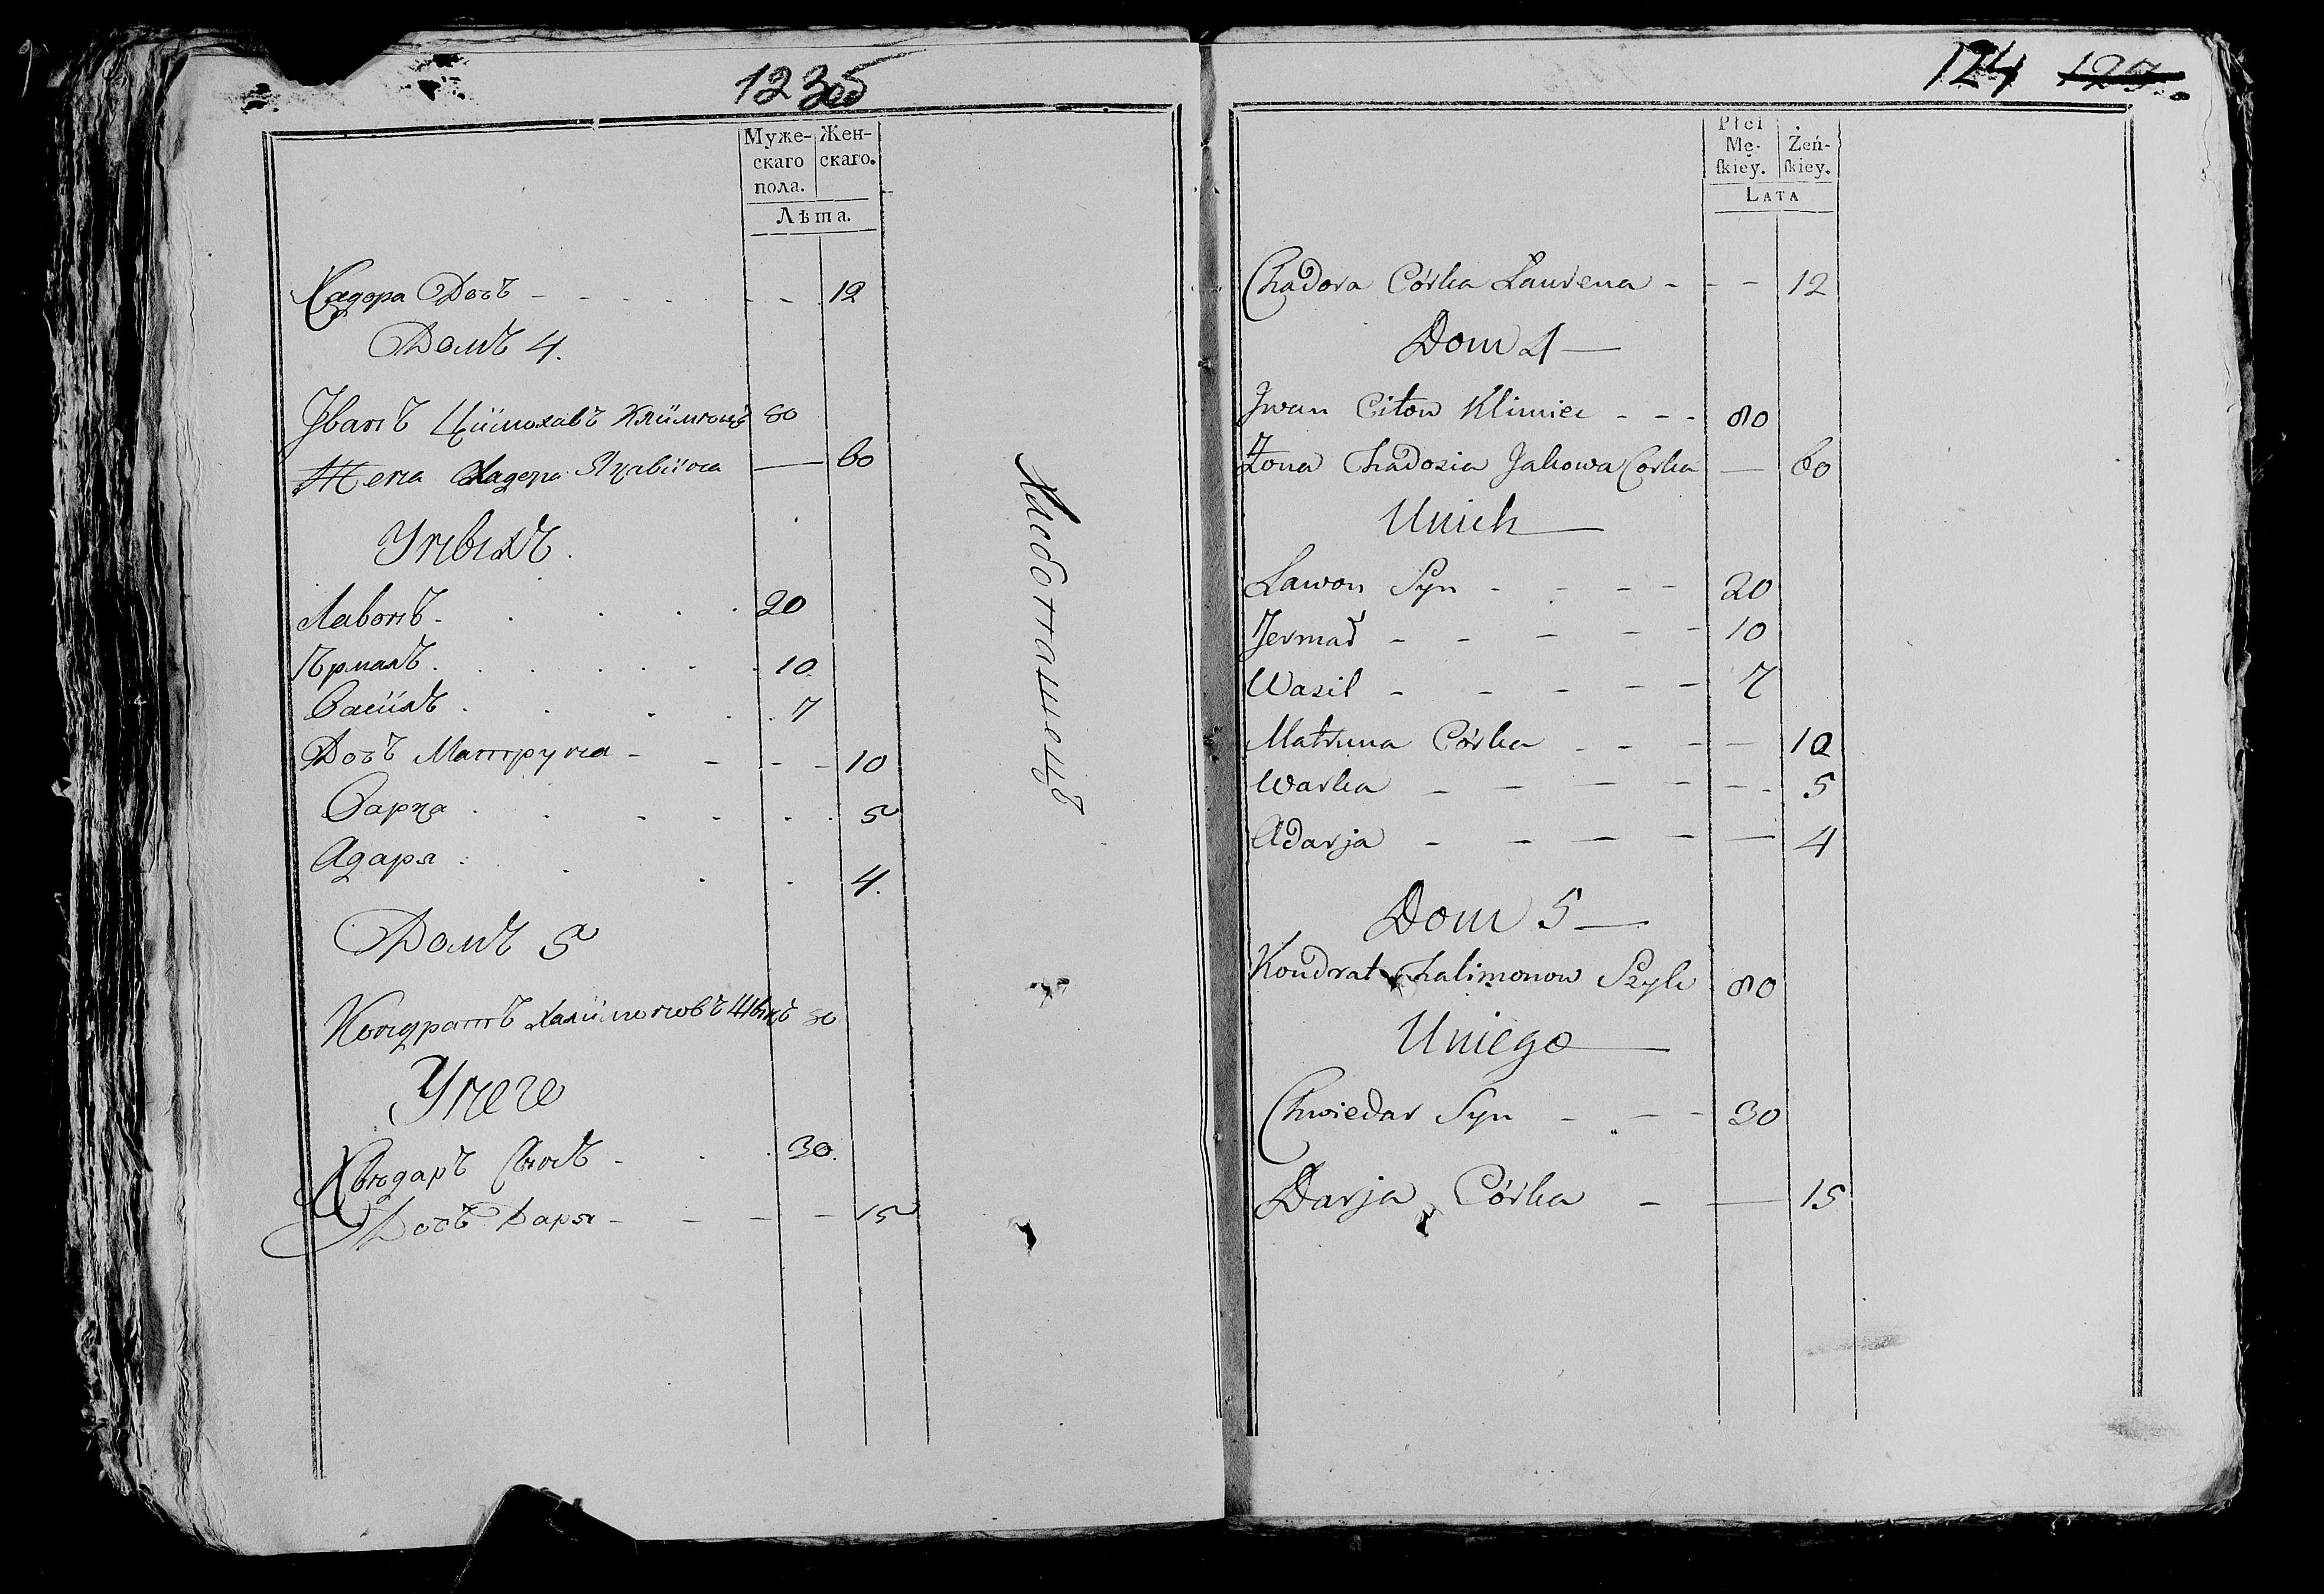 123об
Муже- Жен-
скаго скаго.
пола.
Лѣта.
Хадора Дочъ - - - - - - - 12
Домъ 4.
Иванъ Цїимохавъ Клїимкоцъ 80
Жена Хадора Яцавїина — 60
Унвихъ
Лавонъ 20
Ѣрмалъ 10
Васїиль 7
Дочъ Матруна - - - - 10
Варка 5
Адаря 4.
Домъ 5
Кондратъ Халїимоновъ Шылъ 80
Унего
Хвѣдаръ Сынъ - 30.
Дочъ Даря - - - - 15
124 125
Płci
Mę- Żeń-
ſkiey. ſkiey.
LATA
Chadora Córka Laurena - - - 12
Dom 4 —
Jwan Citow Klimiec - - - 80
Żona Chadosia Jakowa Corka — 60
Unich —
Lawon Syn - - - - 20
Jermał - - - - - 10
Wasil - - - - - 7
Matruna Córka - - - — 10
Warka - - - - - - 5
Adarja - - - - — 4
Dom 5 —
Kondrat Chalimonow Szyłe 80
Uniego —
Chwiedar Syn - - - 30
Darja Córka - — 15